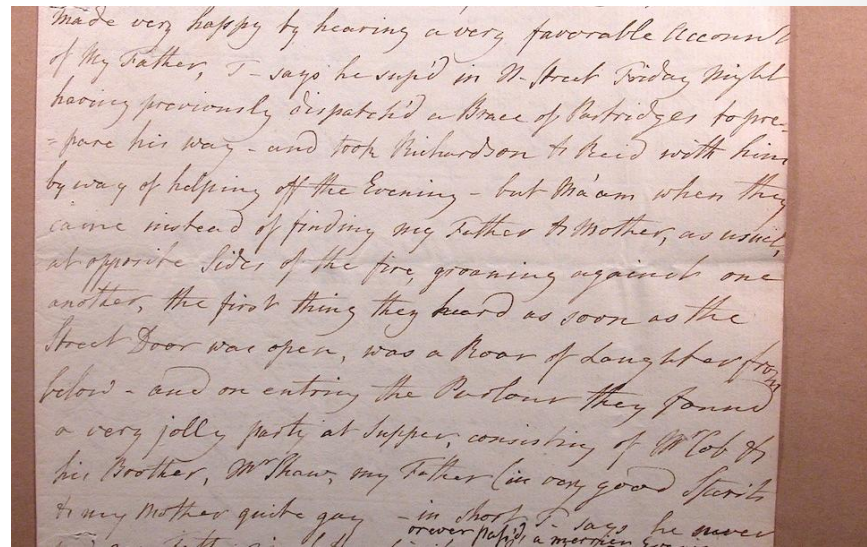 made very happy by hearing a very favorable Account
of My Father, T- says he sup'd in N. Street Friday Night
having previously dispatch'd a Brace of Partridges to pre-
=pare his way - and took Richardson & Reid with him
by way of helping off the Evening - but Ma'am when they
came instead of finding my Father & Mother, as usual,
at opposite Sides of the fire, groaning against one
another, the first thing they heard as soon as the
Street Door was open, was a Roar of Laughter from
below - and on entring the Parlour they found
a very jolly party at Supper, consisting of Mr Cob &
his Brother, Mr Shaw, my Father (in very good Spirits
& my Mother quite gay - in short T- says he never
or ever pass'd a merrier